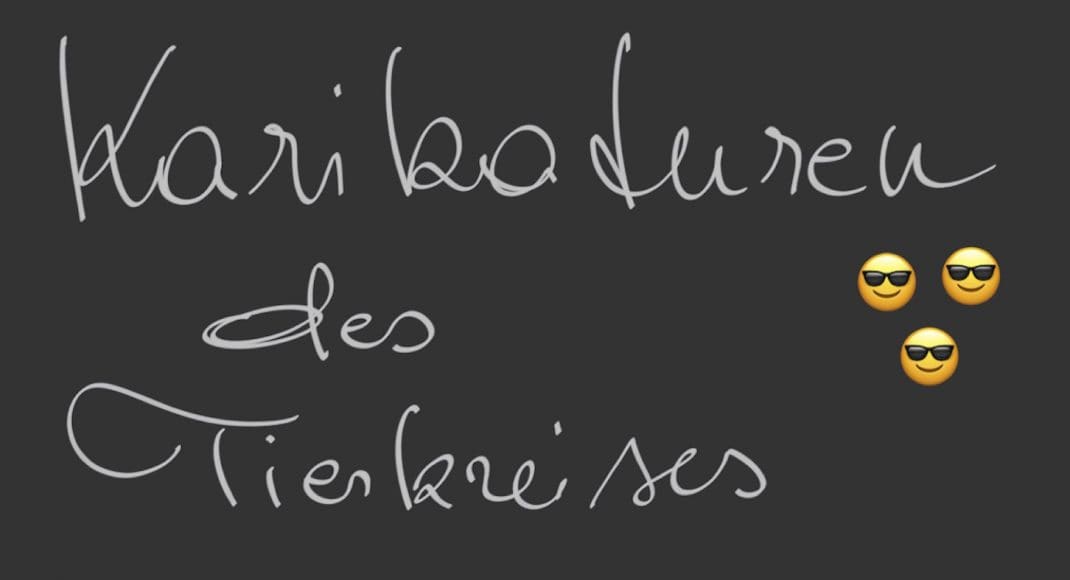 Karikaturen
des
Tierkreises